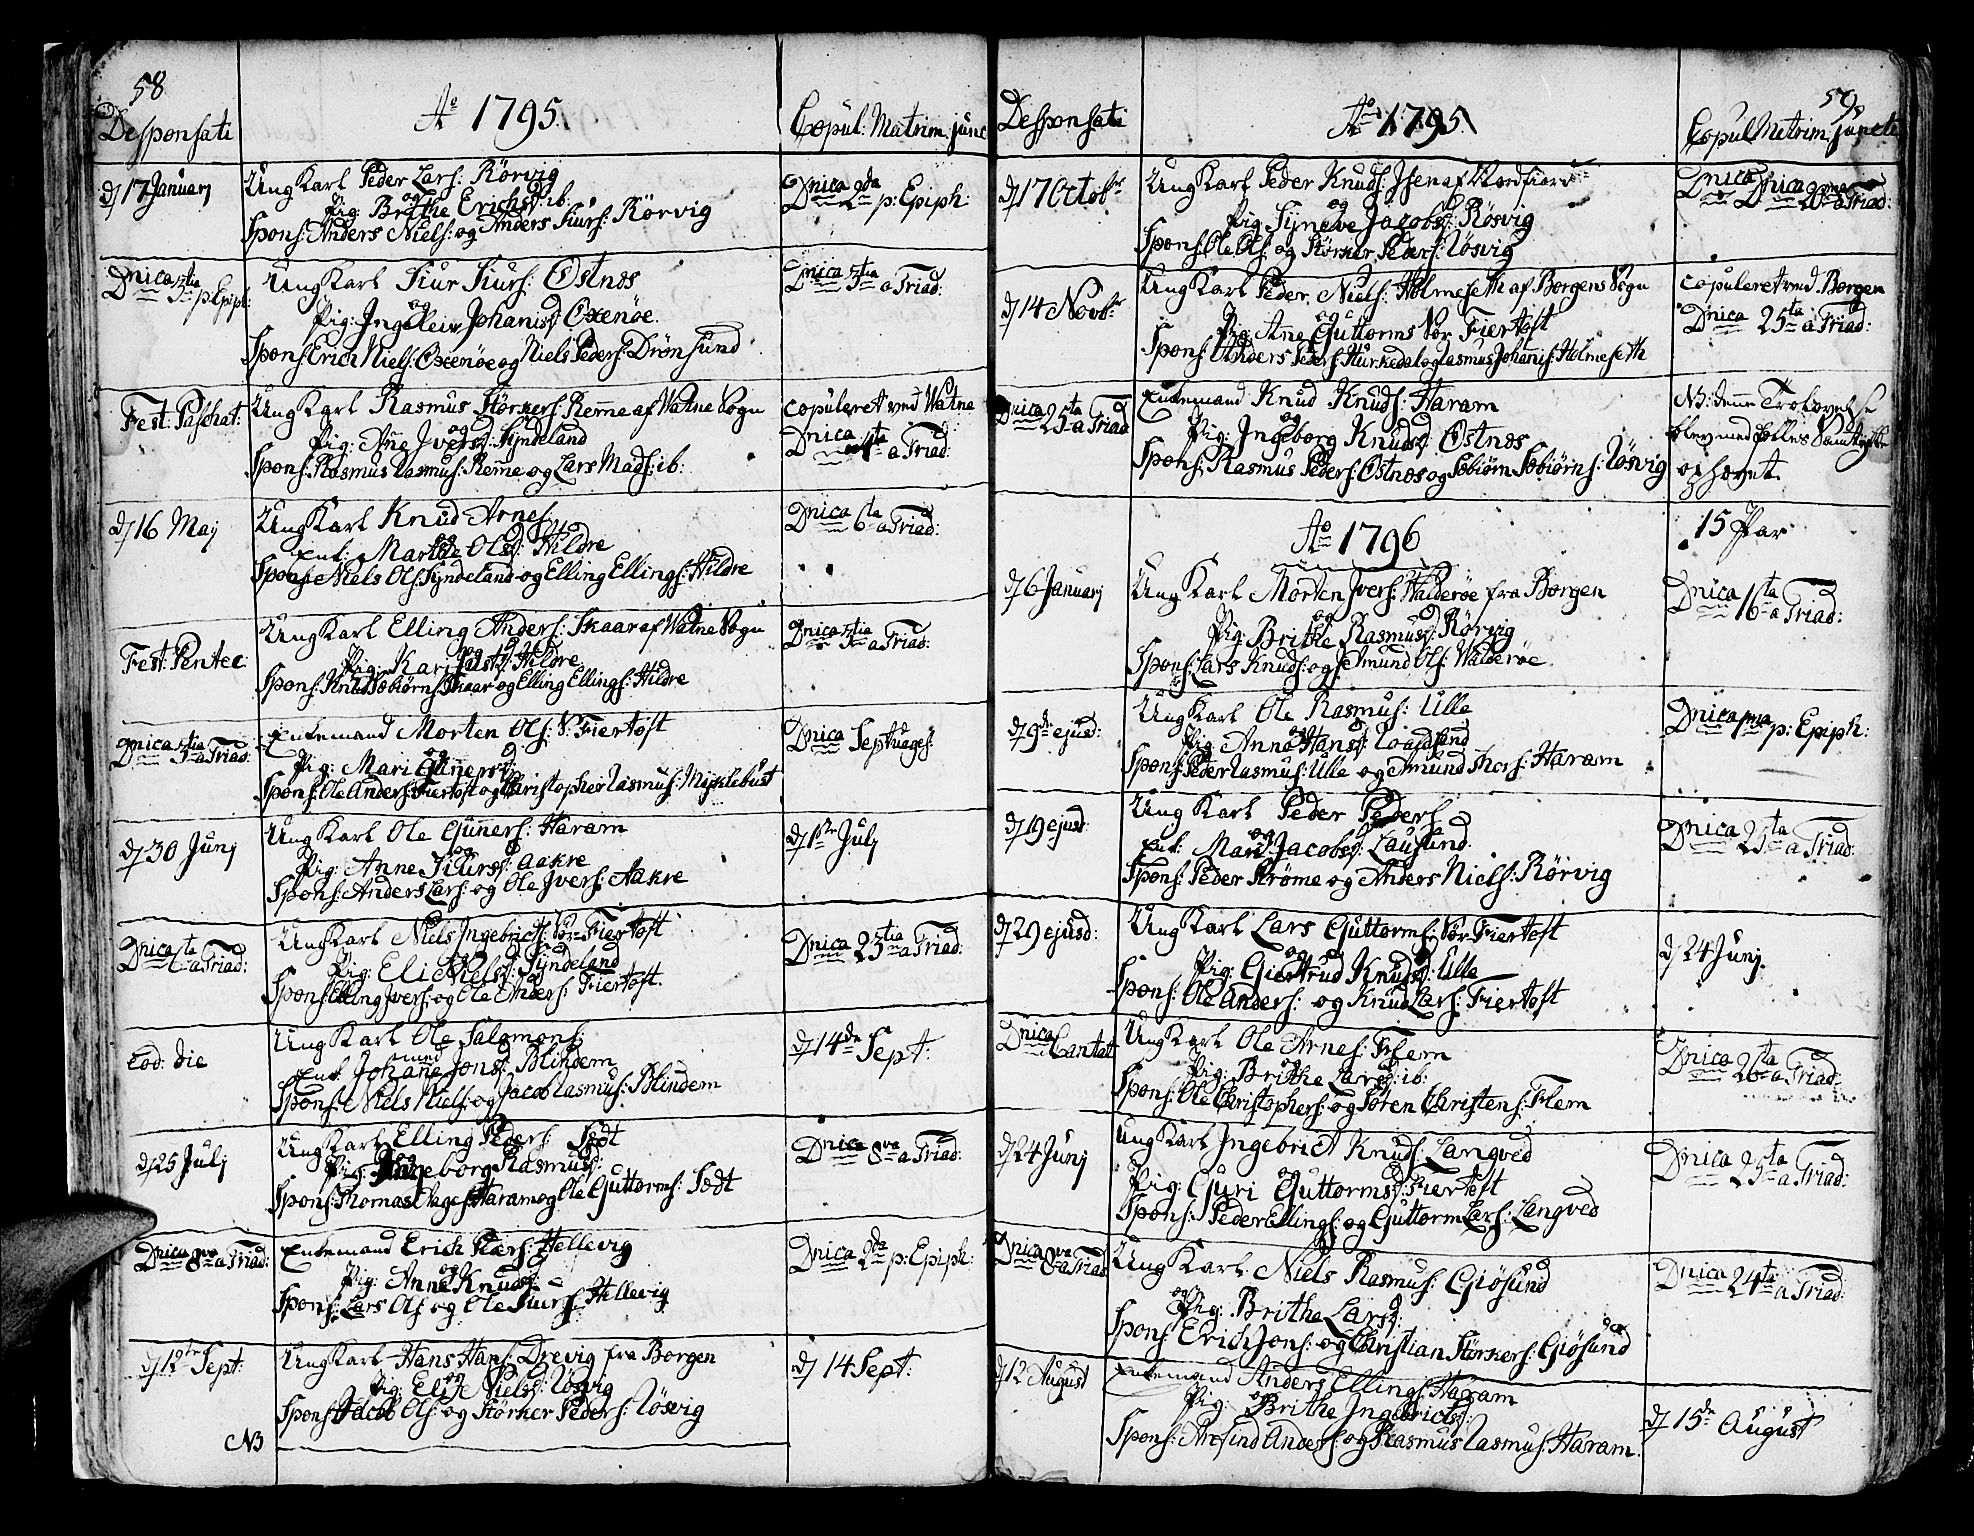 58
Desponsati
Ao 1795.
Copul: Matrim: junc
d 17 Januarj
Ung Karl Peder Lars: Rörvig
og
Pig: Brithe Erichsd: ib:
Spons: Anders Niels: og Anders Siurs: Rörvig
Dnica 2da p: Epiph:
Dnica 3tia p: Epiph:
Ung Karl Siur Siurs: Ostnøs
og
Pig: Ingeleiv Johanisd: Oxenøe.
Spons: Erich Niels: Oxenøe og Niels Peders: Drönsund
Dnica 3tia a Triad:
Fest: Paschat:
Ung Karl Rasmus Störkers: Remme af Watne Sogn
og
Pig: Anne Iversd: Syndeland
Spons: Rasmus Rasmus: Remme og Lars Mads: ib:
copuleret ved Watne
Dnica 4ta a Triad:
d 16 Maj
Ung Karl Knud Arnes:
og
Enk: Marthe Olsd: Hildre
Spons: Niels Ols: Syndeland og Elling Ellings: Hildre
Dnica 6ta a Triad:
Fest: Pentec:
Ung Karl Elling Anders: Skaar af Watne Sogn
og
Pig: Kari Justsd: Hildre
Spons: Knud Tobiörns: Skaar og Elling Ellings: Hildre
Dnica 3tia a Triad:
Dnica 3tia a Triad:
Enkemand Morten Ols: S: Fiertoft
og
Pig: Mari Gunnersd:
Spons: Ole Anders: Fiertoft og Christopher Rasmus: Myklebust
Dnica Septuages:
d 30 Junj
Ung Karl Ole Gunners: Haram
og
Pig: Anne Siursd: Aakre
Spons: Anders Lars: og Ole Ivers: Aakre
d 1ste Julj
Dnica 6ta a Triad:
Ung Karl Niels Ingebricts: Sör-Fiertoft
og
Pig: Eli Nielsd: Syndeland
Spons: Elling Ivers: og Ole Anders: Fiertoft.
Dnica 23tia a Triad:
Eod: die
Ung Karl Ole Salamons:
med
Enk: Johane Jonsd: Blindem
Spons: Niels Niels: og Jacob Rasmus: Blindem
d 14de Sept:
d 25 Julj
Ung Karl Elling Peders: Södt
og
Pig: Ingeborg Rasmusd:
Spons: Thomas Aages: Haram og Ole Guttorms: Södt
Dnica 8va a Triad:
Dnica 8va a Triad:
Enkemand Erich Peders: Hellevig
og
Pig: Anne Knudsd:
Spons: Lars Ols: og Ole Siurs: Hellevig
Dnica 2da p: Epiph:
d 12te Sept:
Ung Karl Hans Hans: Drevig fra Borgen
og
Pig: Eli Nielsd: Rösvig
Spons: Jacob Ols: og Störker Peders: Rösvig
d 14 Sept:
NB
59
Desponsati
Ao 1795.
Copul Matrim: juncti
d 17 Octobr
Ung Karl Peder Knuds: Isen af Nordfiord
og
Pig: Syneve Jacobsd: Rösvig
Spons: Ole Ols: og Störker Peders: Rösvig
Dnica Dnica 20ma a Triad:
d 14 Novbr
Ung Karl Peder Niels: Holmeseth af Borgens Sogn
og
Pig: Ane Guttorms Sör Fiertoft
Spons: Anders Peders: Hurkedal og Rasmus Johanis: Holmeseth
copuleret ved Borgen
Dnica 25ta a Triad:
Dnica 25ta a Triad
Enkemand Knud Knuds: Haram
og
Pig: Ingeborg Knudsd: Ostnøs
Spons: Rasmus Peders: Ostnøs og Tobiörn Tobiörns: Rösvig
NB: denne Trolovelse
blev med fælles Samtykke
ophævet.
Ao 1796
15 Par
d 6 Januarj
Ung Karl Morten Ivers: Walderøe fra Borgen
og
Pig: Brithe Rasmusd: Rörvig
Spons: Lars Knuds: og Amund Ols: Walderøe
Dnica 16ta a Triad:
d 9de ejusd:
Ung Karl Ole Rasmus: Ulle
og
Pig: Anne Hansd:
Spons: Peder Rasmus: Ulle og Amund Thors: Haram
Dnica 1ma p: Epiph:
d 19 ejusd:
Ung Karl Peder Peders:
og
Enk: Mari Jacobsd: Lausund
Spons: Peder Ströme og Anders Niels: Rörvig
Dnica 25ta a Triad:
d 29 ejusd:
Ung Karl Lars Guttorms: Sör Fiertoft
og
Pig: Giertrud Knudsd: Ulle
Spons: Ole Anders: og Knud Lars: Fiertoft
d 24 Junj.
Dnica Cantat
Ung Karl Ole Arnes: Flem
og
Pig: Brithe Larsd: ib:
Spons: Ole Christophers: og Søren Christens: Flem
Dnica 26ta a Triad:
d 24 Junj
Ung Karl Ingebrict Knuds: Langved
og
Pig: Guri Guttormsd: Fiertoft
Spons: Peder Ellings: og Guttorm Lars: Langved
Dnica 25ta a Triad:
Dnica 8va a Triad
Ung Karl Niels Rasmus: Giösund
og
Pig: Brithe Larsd:
Spons: Erich Jons: og Christian Störkers: Giösund
Dnica 24ta a Triad:
d 12 August
Enkemand Anders Ellings: Haram
og
Pig: Brithe Ingebrictsd:
Spons: Anfind Anders: og Rasmus Rasmus: Haram.
d 15de August